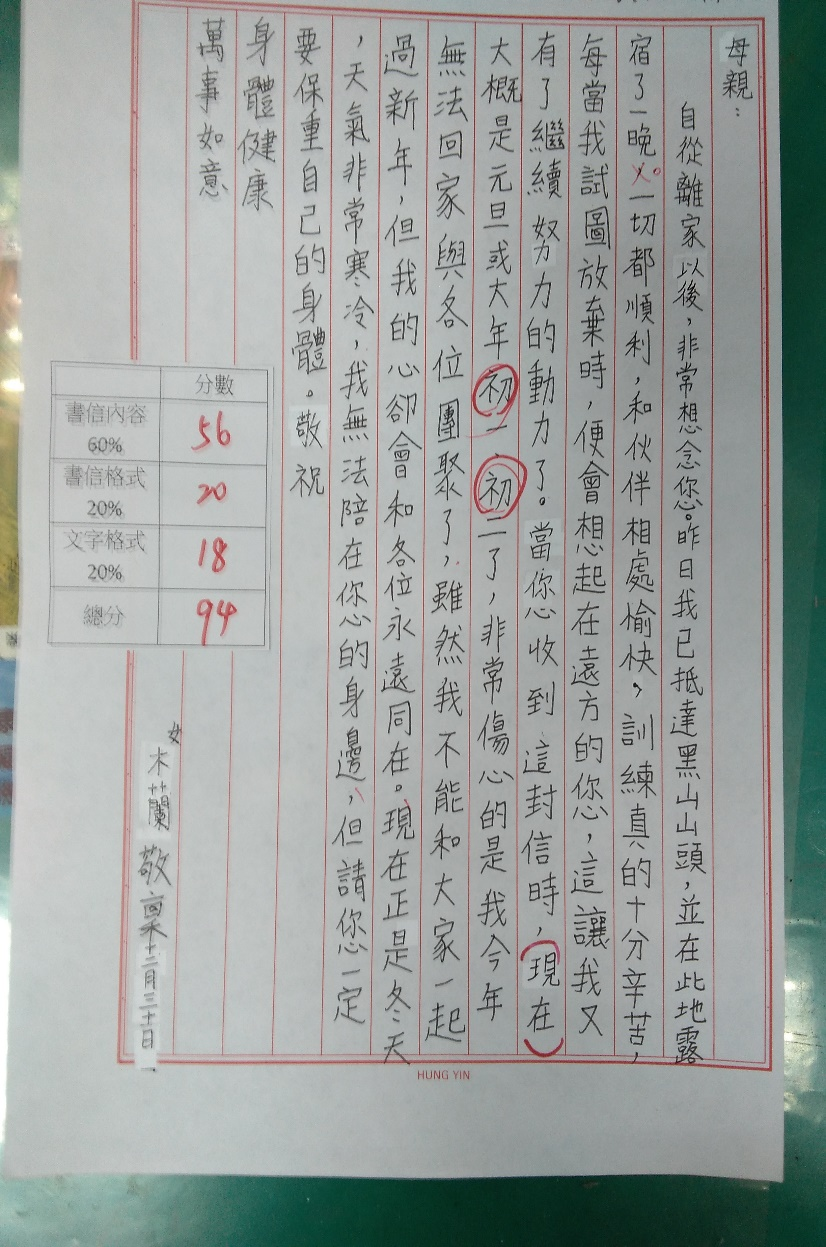 母親：
自從離家以後，非常想念您。昨日我已抵達黑山山頭，並在此地露
宿了一晚。一切都順利，和伙伴相處愉快，訓練真的十分辛苦，
每當我試圖放棄時，便會想起在遠方的您，這讓我又
有了繼續努力的動力了。當您收到這封信時，(現在)
大概是元旦或大年初一、初二了，非常傷心的是我今年
無法回家與各位團聚了，雖然我不能和大家一起
過新年，但我的心卻會和各位永遠同在。現在正是冬天
，天氣非常寒冷，我無法陪在您的身邊，但請您一定
要保重自己的身體。敬祝
身體健康
萬事如意
女木蘭敬稟十二月三十日
分數
書信內容 60% 56
書信格式 20% 20
文字格式 20% 18
總分 94
HUNG YIN